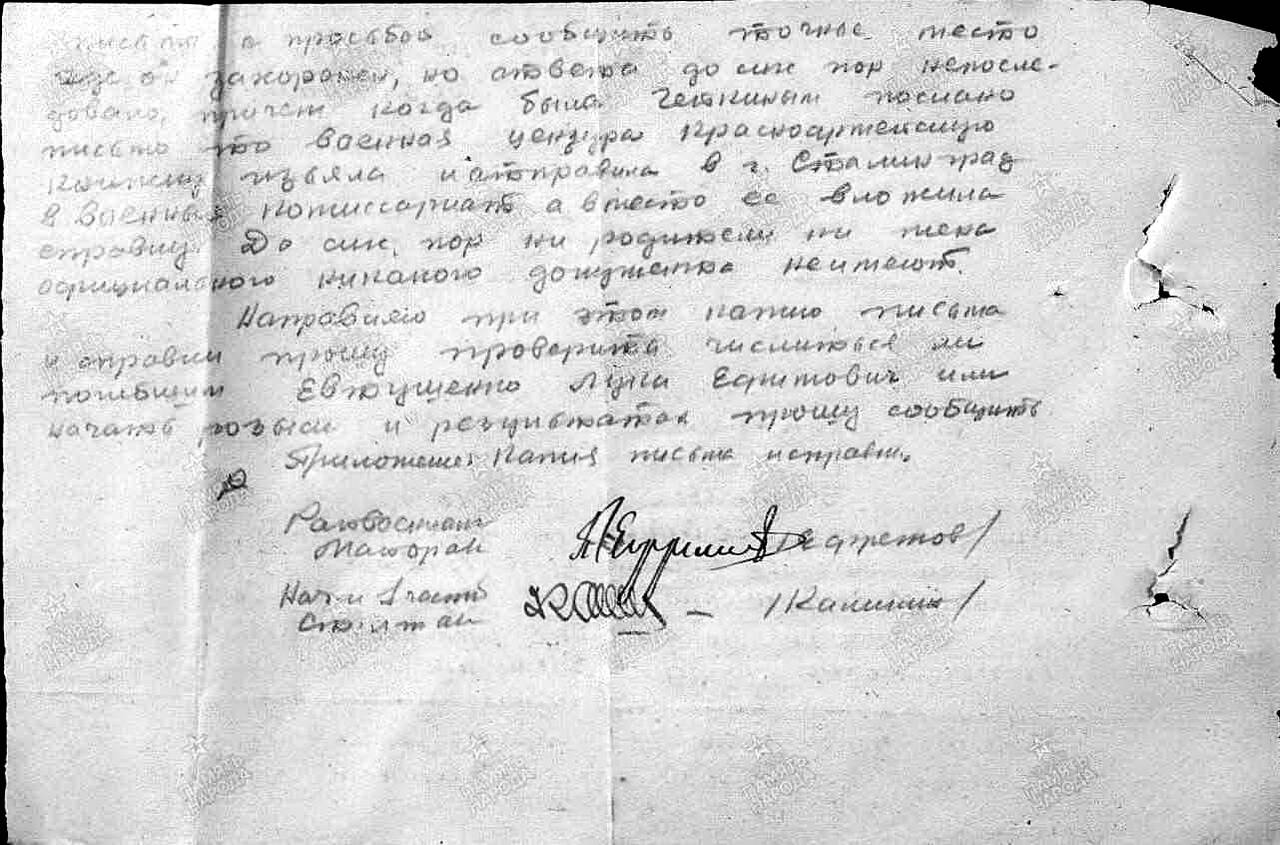 письма с просьбой сообщить точное место
где он захоронен, но ответа до сих пор непосле-
довало, причем когда была Четкиным послано
письмо то военная цензура Красноармейскую
книжку изъяла и отправила в г. Сталинград
в военный комиссариат а вместо ее вложила
справку. До сих пор ни родители ни жена
официального никакого документа неимеют.
Направляю при этом капию письма
и справки прошу проверить числиться ли
погибшим Евтушенко Лука Ефимович или
начать розыск и результатах прошу сообщить
Приложение: Капия письма исправки.
Райвоенком
Майор ак /Ефремов/
Нач и 1 части
Ст.лт ак /Калинин/
ПАМЯТЬ НАРОДА